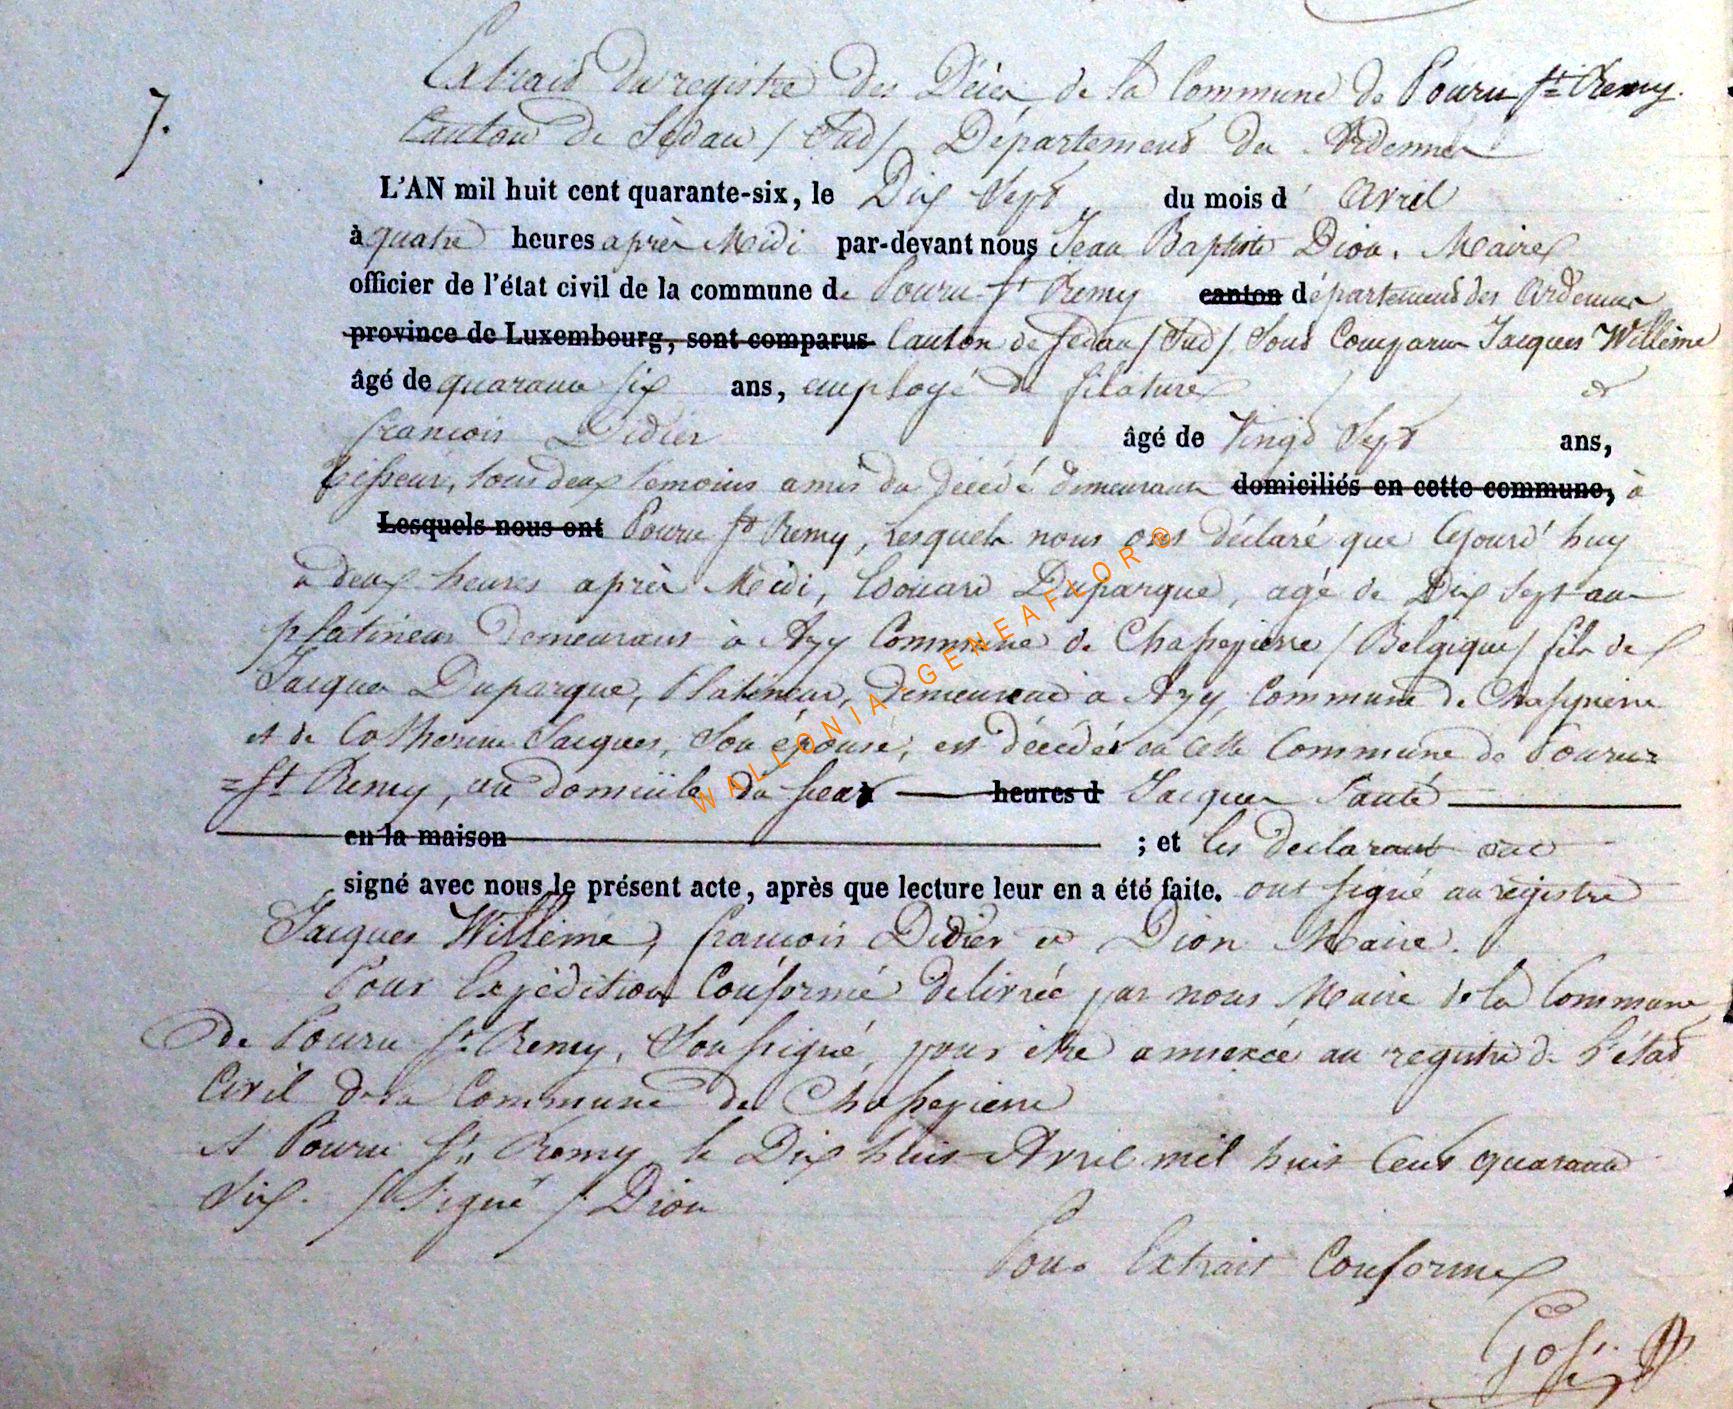 7.
Extrait du registre des Décès de la Commune de Pouru St Remy.
Canton de Sedan / Sud / Département des Ardennes
L'AN mil huit cent quarante-six, le Dix Sept du mois d' Avril
à quatre heures après Midi par-devant nous Jean Baptiste Dion, Maire
officier de l'état civil de la commune de Pouru St Remy canton département des Ardennes
province de Luxembourg, sont comparus Canton de Sedan / Sud / Sont Comparus Jacques Willème
âgé de quarante six ans, employé de filature et
françois Didier âgé de Vingt Sept ans,
tisseur, tous deux temoins amis du décédé demeurant domiciliés en cette commune, à
Lesquels nous ont Pouru St Remy, Lesquels nous ont déclaré que Cejourd'huy
à deux heures après Midi, Edouard Duparque, agé de Dix Sept ans
platineur demeurant à Azy Commune de Chassepierre / Belgique / fils de
Jacques Duparque, Platineur, demeurant à Azy, Commune de Chassepierre
et de Catherine Jacques, Son épouse, est décédé en cette Commune de Pouru=
=St Remy, au domicile du sieur heures d Jacques Santé
en la maison ; et les declarant ont
signé avec nous le présent acte, après que lecture leur en a été faite. ont signé au registre
Jacques Willème, françois Didier et Dion Maire.
Pour Expédition Conforme délivrée par nous Maire de la Commune
de Pouru St Remy, Soussigné, pour être annexée au registre de l'état
Civil de la Commune de Chassepierre
A Pouru St Remy le Dix huit Avril mil huit Cent quarante
Six. / Signé / Dion
Pour Extrait Conforme
WALLONIA-GENEAFLOR®